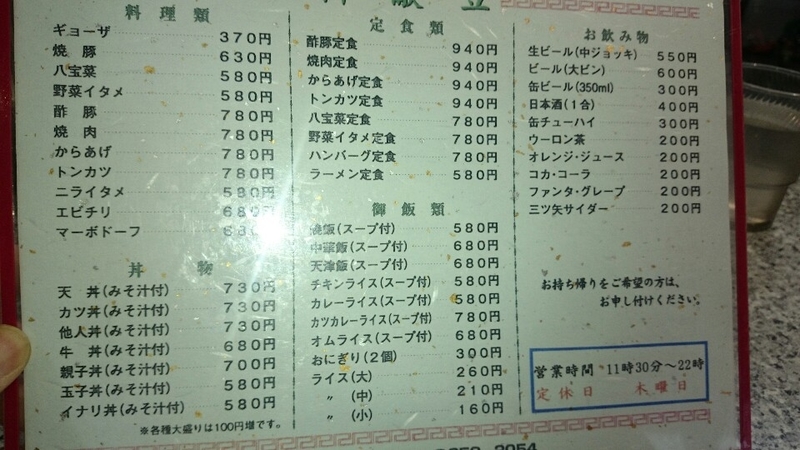 料理類
ギョーザ 370円
焼豚 630円
八宝菜 580円
野菜イタメ 580円
酢豚 780円
焼肉 780円
からあげ 780円
トンカツ 780円
ニライタメ 580円
エビチリ 680円
マーボドーフ 680円
丼物
天丼(みそ汁付) 730円
カツ丼(みそ汁付) 730円
他人丼(みそ汁付) 730円
牛丼(みそ汁付) 680円
親子丼(みそ汁付) 700円
玉子丼(みそ汁付) 580円
イナリ丼(みそ汁付) 580円
※各種大盛りは100円増です。
定食類
酢豚定食 940円
焼肉定食 940円
からあげ定食 940円
トンカツ定食 940円
八宝菜定食 780円
野菜イタメ定食 780円
ハンバーグ定食 780円
ラーメン定食 580円
御飯類
焼飯(スープ付) 580円
中華飯(スープ付) 680円
天津飯(スープ付) 680円
チキンライス(スープ付) 580円
カレーライス(スープ付) 580円
カツカレーライス(スープ付) 780円
オムライス(スープ付) 680円
おにぎり(2個) 300円
ライス(大) 260円
〃(中) 210円
〃(小) 160円
お飲み物
生ビール(中ジョッキ) 550円
ビール(大ビン) 600円
缶ビール(350ml) 300円
日本酒(1合) 400円
缶チューハイ 300円
ウーロン茶 200円
オレンジ・ジュース 200円
コカ・コーラ 200円
ファンタ・グレープ 200円
三ツ矢サイダー 200円
お持ち帰りをご希望の方は、
お申し付けください。
営業時間 11時30分～22時
定休日 木曜日